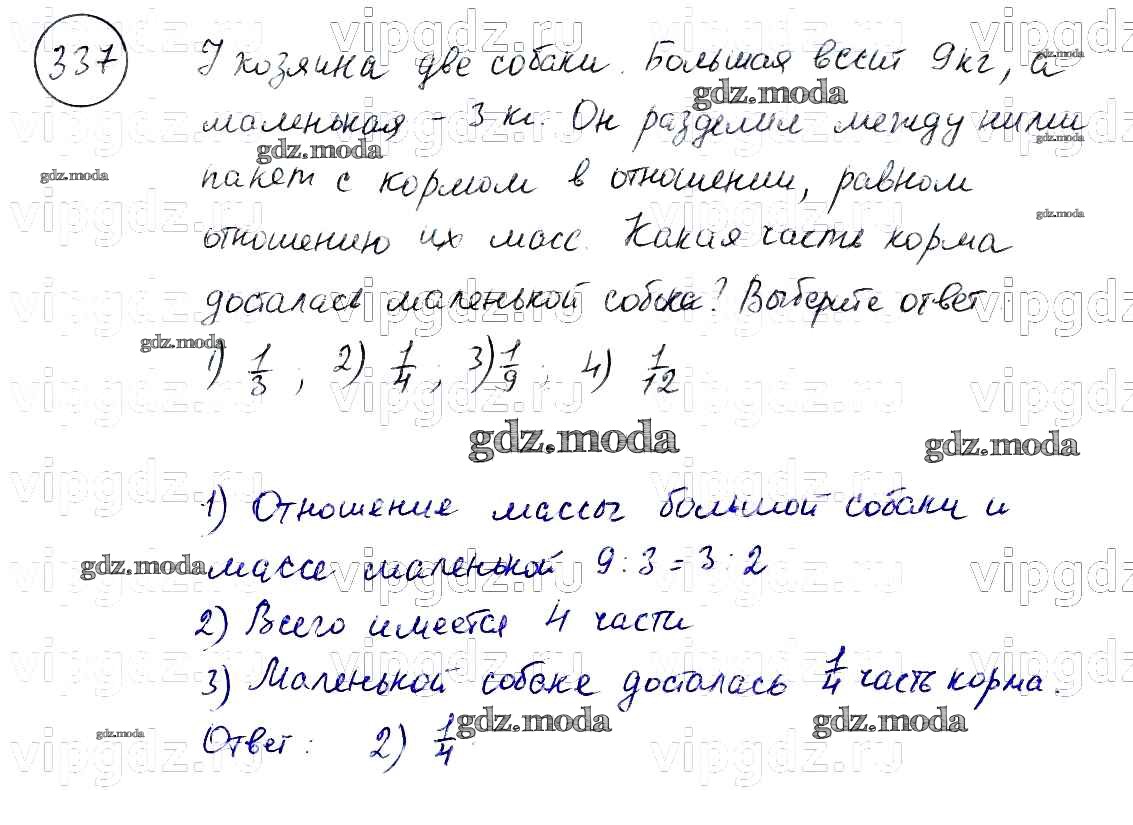 337
У хозяина две собаки. Большая весит 9 кг, а
маленькая - 3 кг. Он разделил между ними
пакет с кормом в отношении, равном
отношению их масс. Какая часть корма
досталась маленькой собаке? Выберите ответ.
1) 1/3 ; 2) 1/4 ; 3) 1/9 ; 4) 1/12
1) Отношение массы большой собаки и
массе маленькой 9 : 3 = 3 : 2
2) Всего имеется 4 части
3) Маленькой собаке досталась 1/4 часть корма.
Ответ: 2) 1/4
gdz.moda
vipgdz.ru